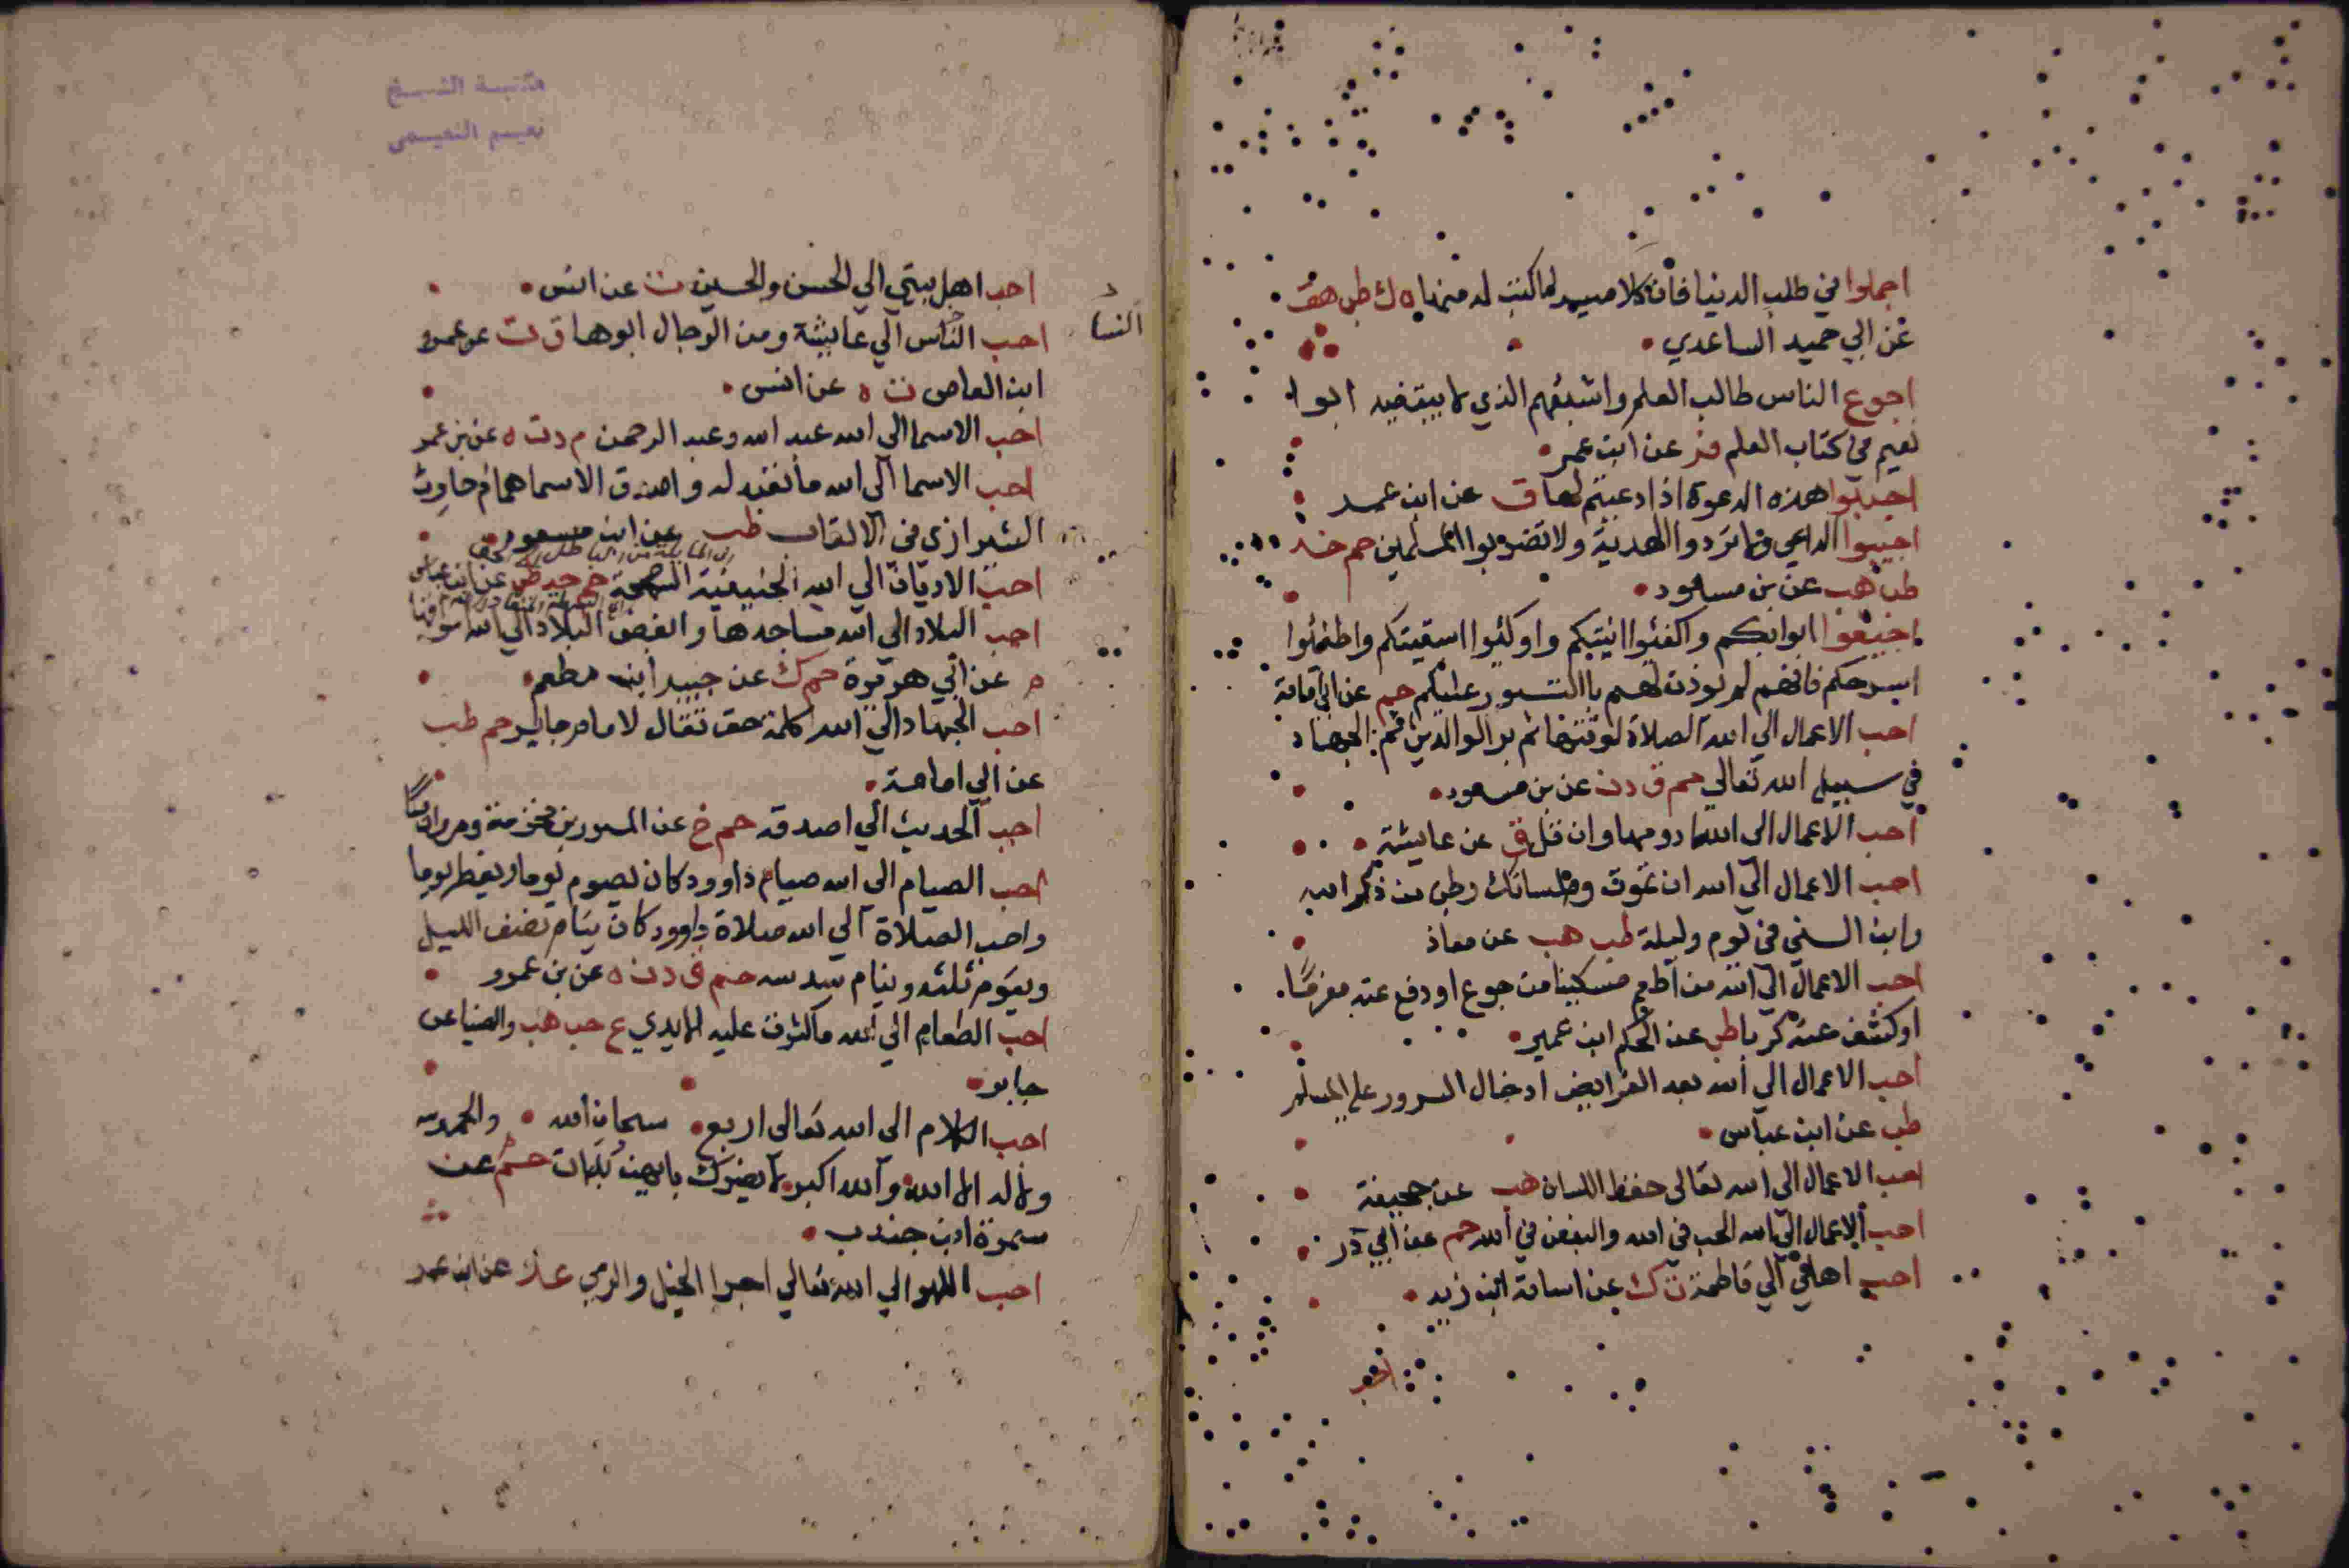 اجملوا في طلب الدنيا فان كلا ميسر لما كتب له منها ه ك طب هق
عن ابي حميد الساعدي
اجوع الناس طالب العلم واشبعهم الذي لا يبتغيه ابوا
نعيم في كتاب العلم فر عن ابن عمر
اجيبوا هذه الدعوة اذا دعيتم لها ق عن ابن عمر
اجيبوا الداعي ولا تردوا الهدية ولا تضربوا المسلمين حم خد
طب هب عن بن مسعود
اجيفوا ابوابكم واكفئوا انيتكم واوكئوا اسقيتكم واطفئوا
اسرجكم فانهم لم يوذن لهم باالتسور عليكم حم عن ابي امامة
احب الاعمال الي الله الصلاة لوقتها ثم بر الوالدين ثم الجهاد
في سبيل الله تعالي حم ق د ن عن بن مسعود
احب الاعمال الى الله ادومها وان قل ق عن عايشة
احب الاعمال الي الله ان تموت ولسانك رطب من ذكر الله
وابن السني في يوم وليلة طب هب عن معاذ
احب الاعمال الي الله من اطعم مسكينا من جوع او دفع عنه مغرما
او كشف عنه كربا طب عن الحكم ابن عمير
احب الاعمال الي الله بعد الفرايض ادخال السرور علي المسلم
طب عن ابن عباس
احب الاعمال الى الله تعالى حفظ اللسان هب عن جحيفة
احب الاعمال الي الله الحب في الله والبغض في الله حم عن ابي ذر
احب اهلي الي فاطمة ت ك عن اسامة ابن زيد
احب
احب اهل بيتي الي الحسن والحسين ت عن انس
النسا
احب الناس الي عايشة ومن الرجال ابوها ق ت عن عمرو
ابن العاص ت ه عن انس
احب الاسما الي الله عبد الله وعبد الرحمن م د ت ه عن بن عمر
احب الاسما الي الله ما تعبد له واصدق الاسما همام وحارث
الشيرازي في الالقاب طب عن ابن مسعود
احب الاديان الي الله الحنيفية السمحة حم خد طب عن ابن عباس
احب البلاد الي الله مساجدها وابغض البلاد الي الله اسواقها
م عن ابي هريرة حم ك عن جبير ابن مطعم
احب الجهاد الي الله كلمة حق تقال لامام جاير حم طب
عن ابي امامة
احب الحديث الي اصدقه حم خ عن المسور بن مخرمة ومروان معا
احب الصيام الي الله صيام داوود كان يصوم يوما ويفطر يوما
واحب الصلاة الي الله صلاة داوود كان ينام نصف الليل
ويقوم ثلثه وينام سدسه حم ق د ن ه عن بن عمرو
احب الطعام الي الله ما كثرت عليه الايدي ع حب هب والضيا عن
جابر
احب الكلام الى الله تعالى اربع سبحان الله والحمد لله
ولا اله الا الله والله اكبر لا يضرك بايهن بدات حم م عن
سمرة ابن جندب
احب اللهو الي الله تعالي اجرا الخيل والرمي عد عن ابن عمر